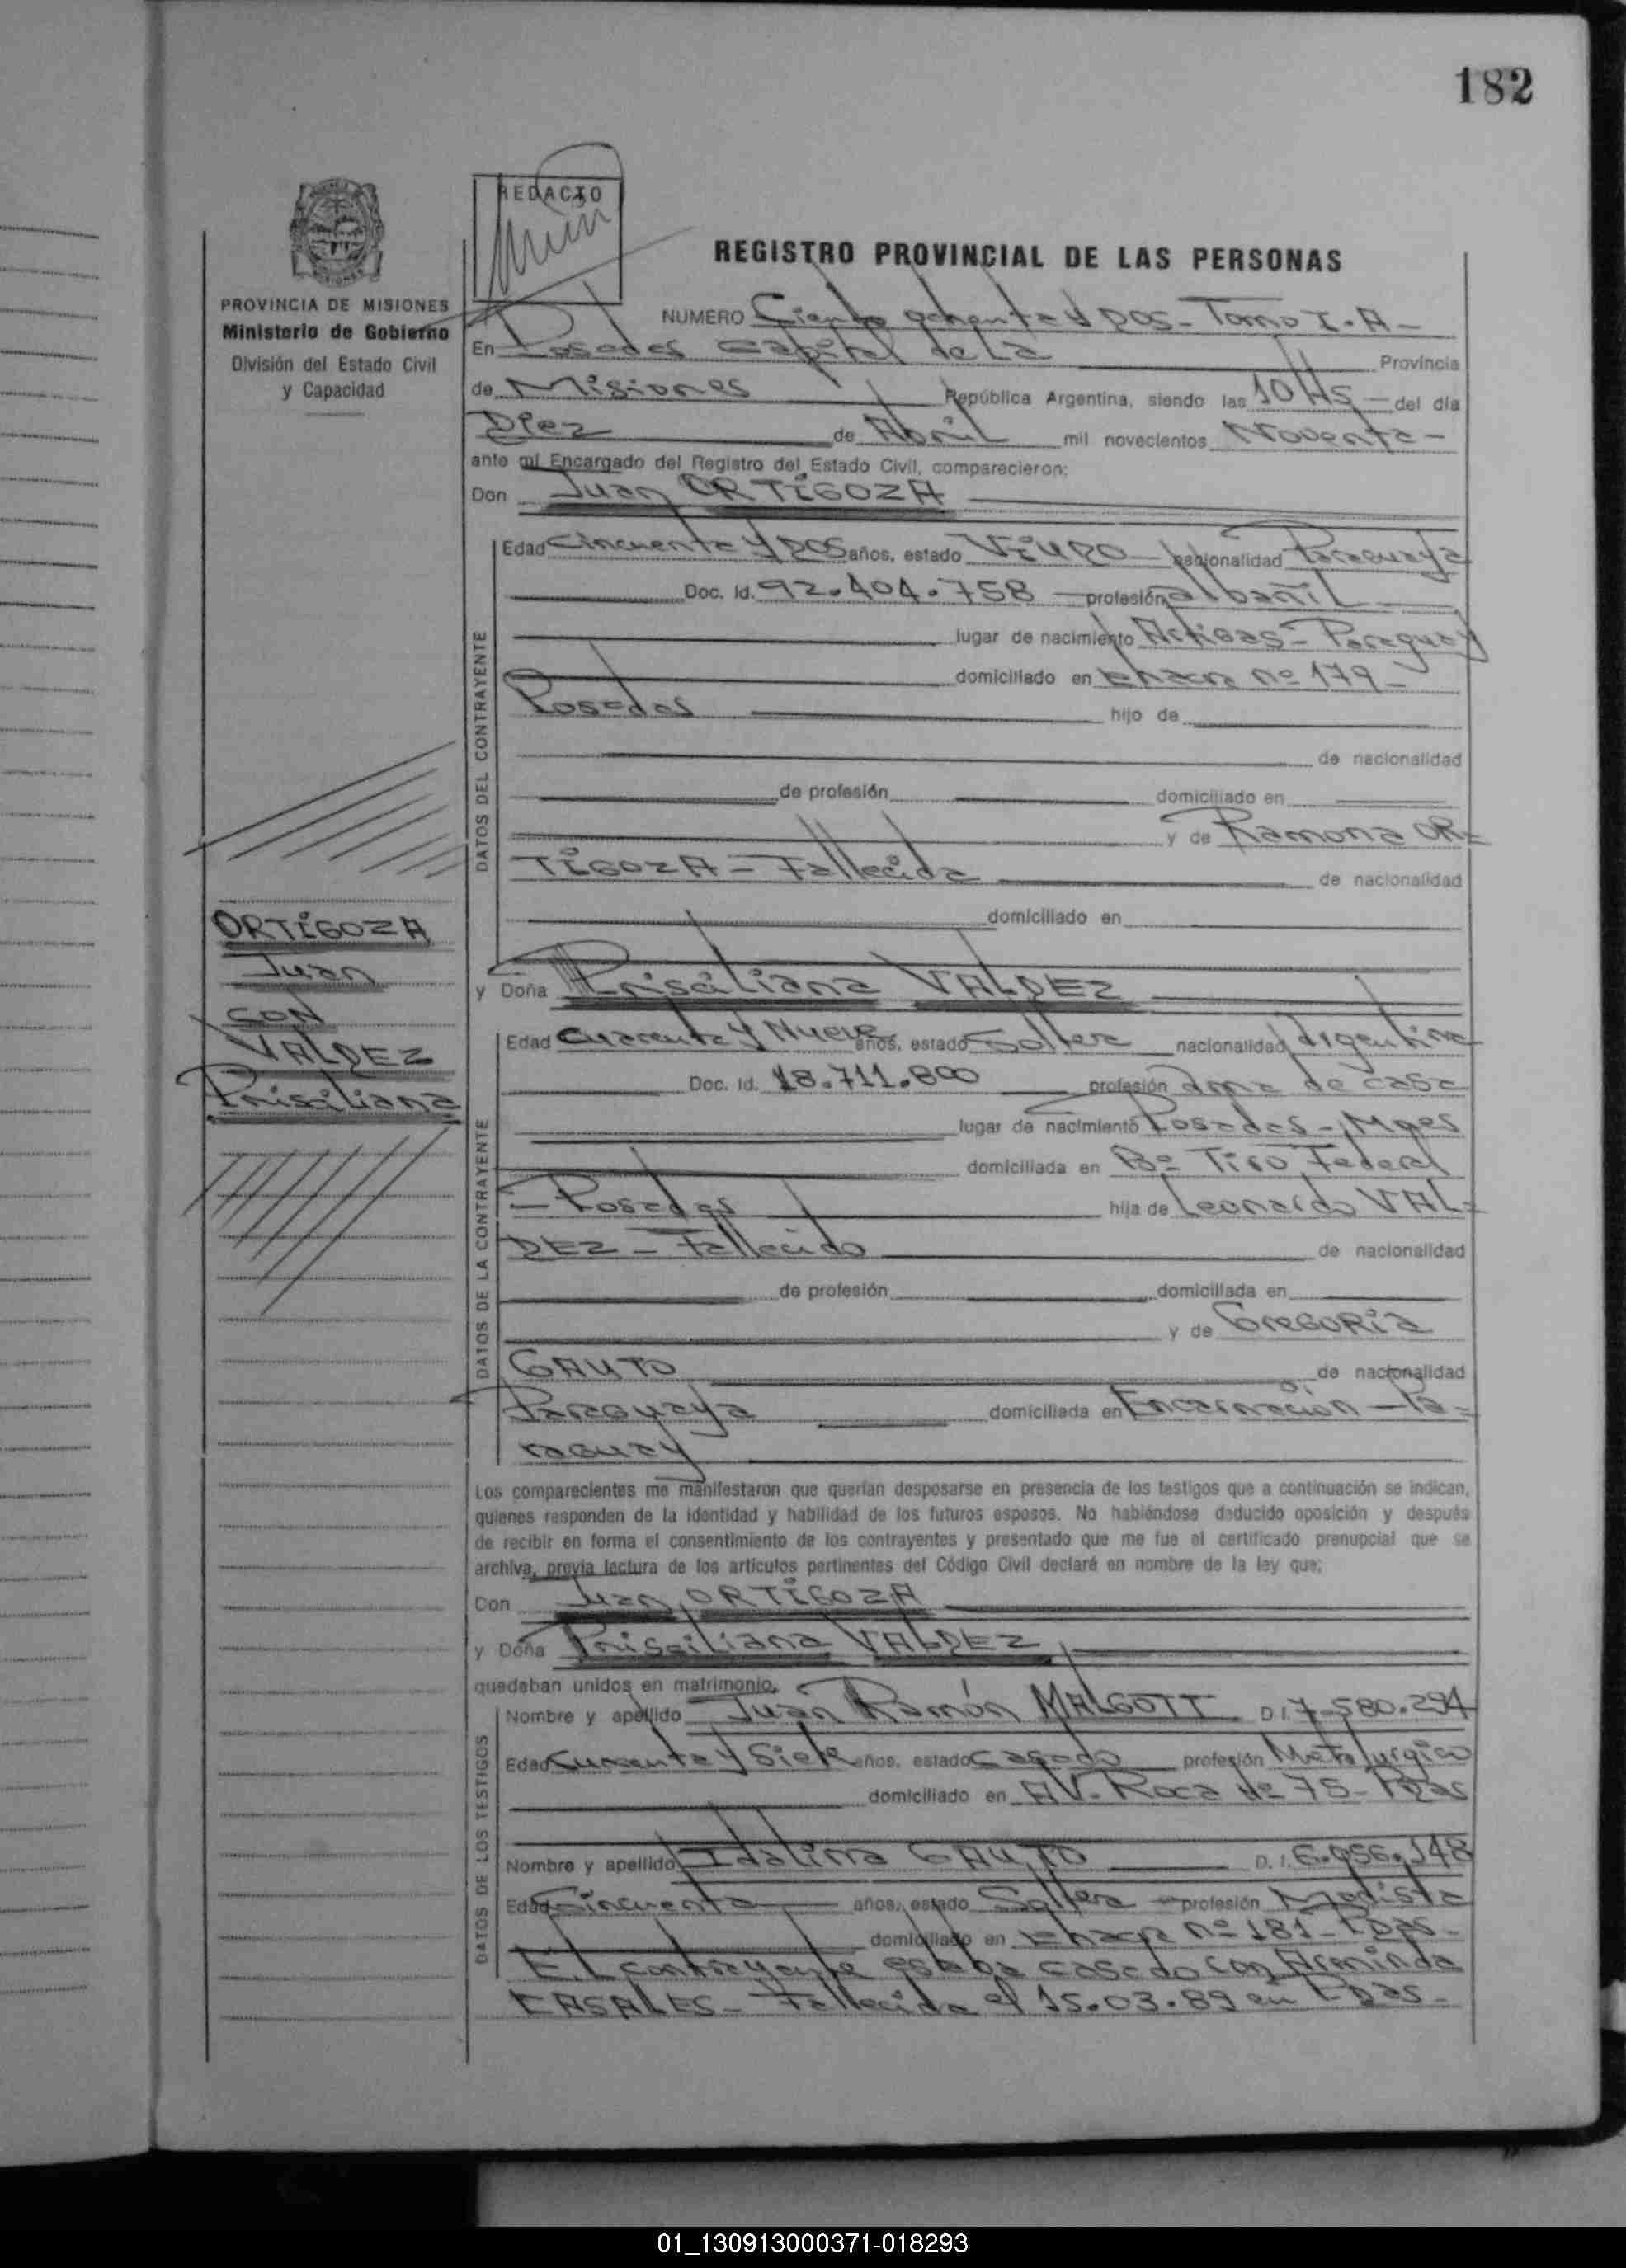 182
REDACTO
PROVINCIA DE MISIONES
Ministerio de Gobierno
División del Estado Civil
y Capacidad
REGISTRO PROVINCIAL DE LAS PERSONAS
NUMERO Ciento ochenta y DOS - Tomo I - A -
En Posadas capital de La Provincia
de Misiones República Argentina, siendo las 10 Hs del día
Diez de Abril mil novecientos Noventa -
ante mi Encargado del Registro del Estado Civil, comparecieron:
Don Juan ORTIGOZA
DATOS DEL CONTRAYENTE
Edad Cincuenta y DOS años, estado Viudo nacionalidad Paraguaya
Doc. Id. 92.404.758 profesión albañil
lugar de nacimiento Artigas - Paraguay
domiciliado en chacra nº 179 -
Posadas hijo de
de nacionalidad
de profesión domiciliado en
y de Ramona OR=
TIGOZA - Fallecida de nacionalidad
domiciliado en
ORTIGOZA
Juan
CON
VALDEZ
Prisciliana
y Doña Prisciliana VALDEZ
DATOS DE LA CONTRAYENTE
Edad Cuarenta y Nueve años, estado Soltera nacionalidad Argentina
Doc. Id. 18.711.800 profesión ama de casa
lugar de nacimiento Posadas - Mnes
domiciliada en Bº Tiro Federal
- Posadas hija de Leonardo VAL=
DEZ - Fallecido de nacionalidad
de profesión domiciliada en
y de Gregoria
GAUTO de nacionalidad
Paraguaya domiciliada en Encarnación - Pa=
raguay
Los comparecientes me manifestaron que querían desposarse en presencia de los testigos que a continuación se indican,
quienes responden de la identidad y habilidad de los futuros esposos. No habiéndose deducido oposición y después
de recibir en forma el consentimiento de los contrayentes y presentado que me fue el certificado prenupcial que se
archiva, previa lectura de los artículos pertinentes del Código Civil declaré en nombre de la ley que;
Con Juan ORTIGOZA
y Doña Prisciliana VALDEZ
quedaban unidos en matrimonio.
DATOS DE LOS TESTIGOS
Nombre y apellido Juan Ramón MALGOTT D.I. 7.580.294
Edad y Siete años, estado casado profesión Metalurgico
domiciliado en AV. Roca nº 75 - Pdas
Nombre y apellido Idalina GAUTO D.I. 6.056.148
Edad Cincuenta años, estado Soltera profesión Modista
domiciliado en chacra nº 181 - Pdas -
El contrayente estaba casado con Arminda
CASALES - Fallecida el 15.03.89 en Pdas -
01_130913000371-018293